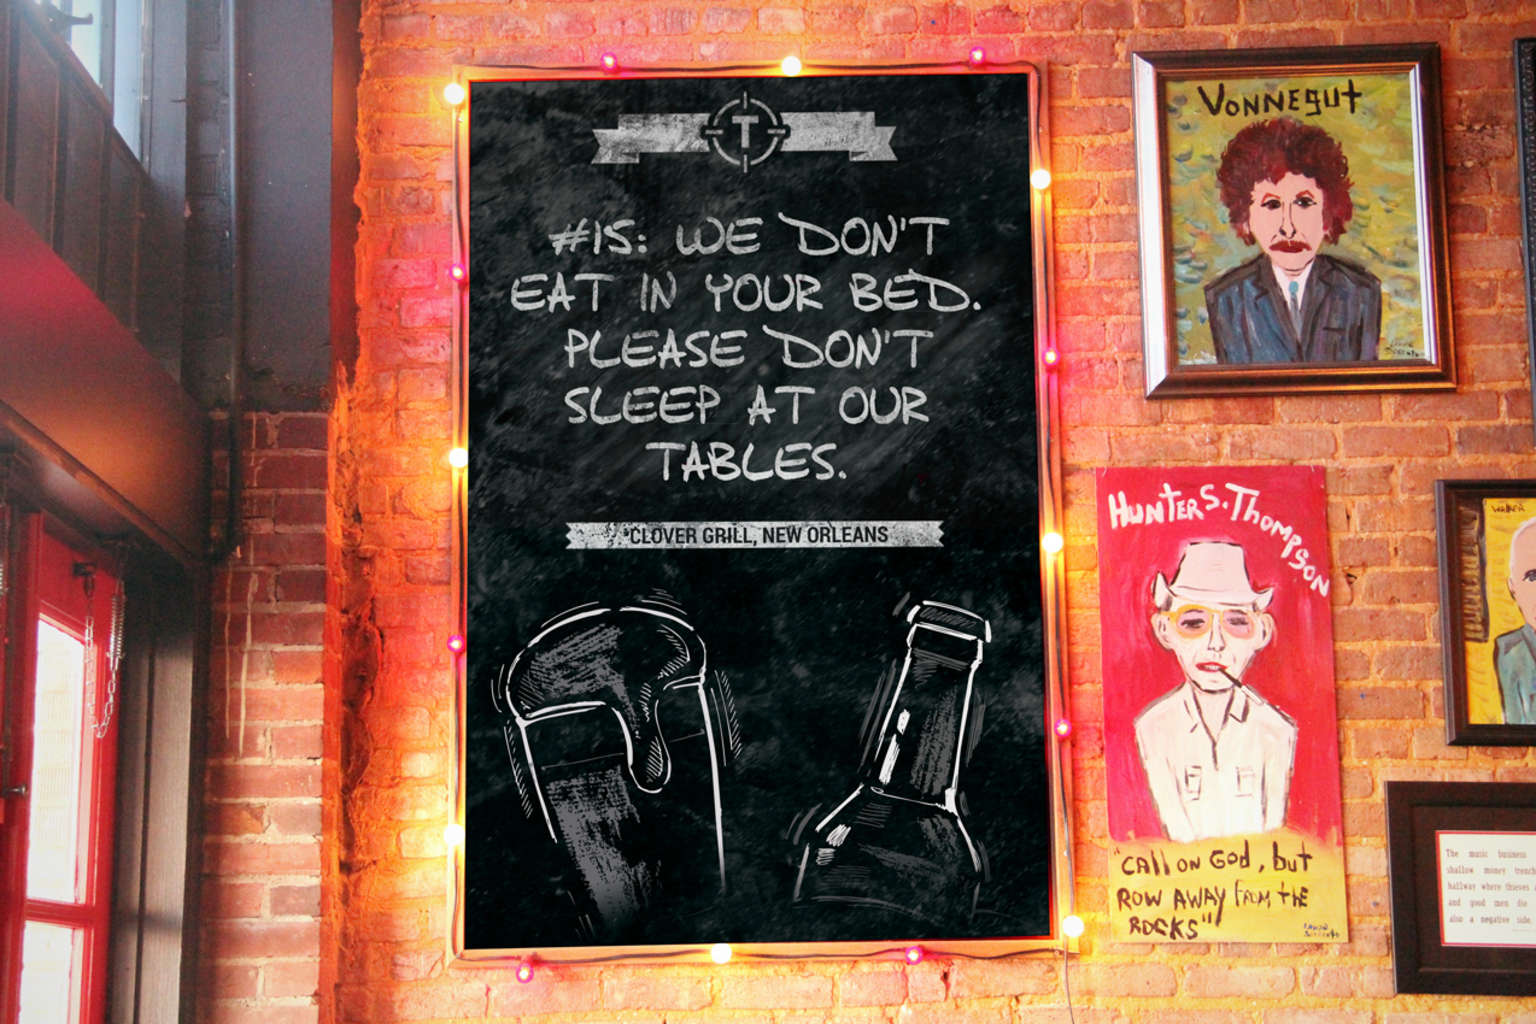 T
#15: WE DON'T
EAT IN YOUR BED.
PLEASE DON'T
SLEEP AT OUR
TABLES.
*CLOVER GRILL, NEW ORLEANS
VONNEgUt
HUNTER S. THompSON
"CAll ON GOd, but
ROW AWAY fROM tHE
ROCKS"
WALKER
The music business
shallow money trench
hallway where thieves
and good men die
also a negative side.